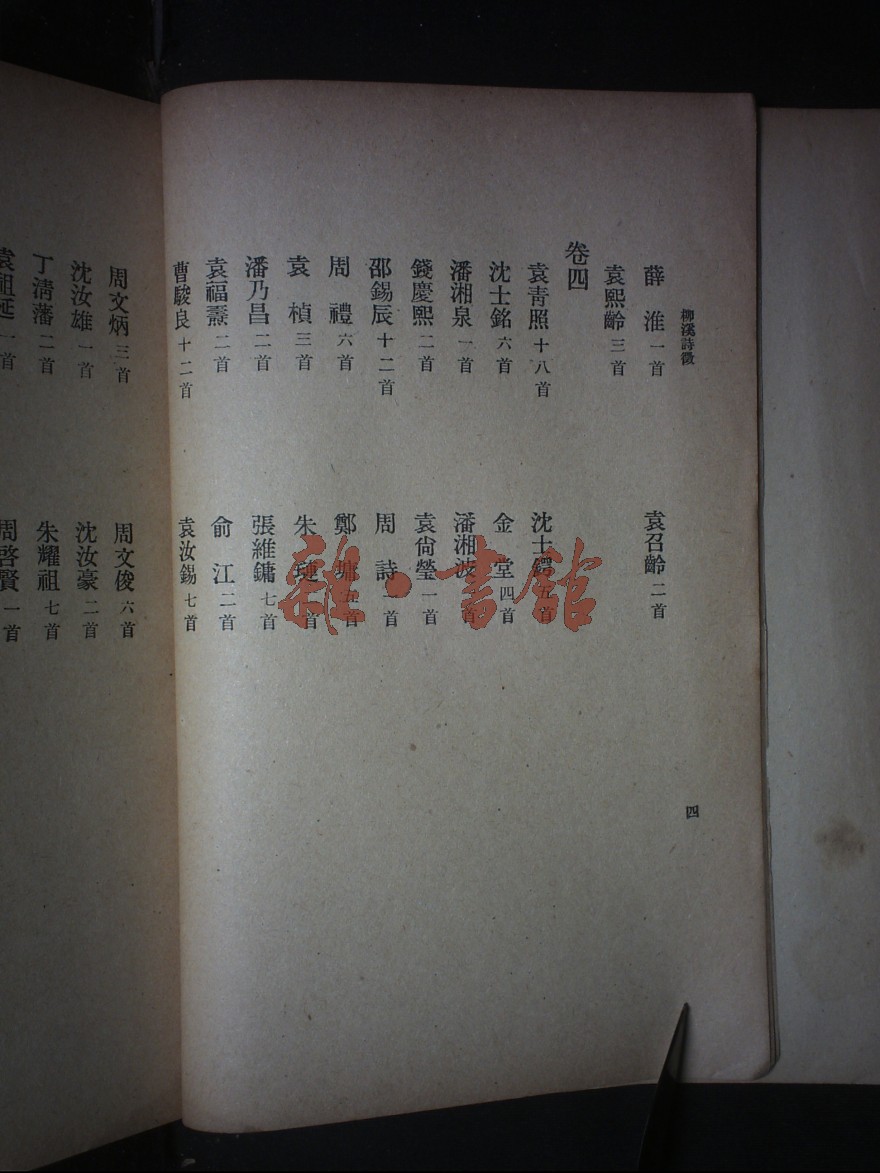 柳溪詩徵
薛淮 一首
袁召齡 二首
袁熙齡 三首
卷四
袁青照 十八首
沈士鐸 五首
沈士銘 六首
金堂 四首
潘湘泉 一首
潘湘波 首
錢慶熙 二首
袁尙瑩 一首
邵錫辰 十二首
周詩 首
周禮 六首
鄭墉 五首
袁楨 三首
朱 首
潘乃昌 二首
張維鏞 七首
袁福 二首
俞江 二首
曹駿良 十二首
袁汝錫 七首
四
周文炳 三首
周文俊 六首
沈汝雄 一首
沈汝豪 二首
丁淸藩 二首
朱耀祖 七首
袁祖延 一首
周啓賢 一首
雜·書館